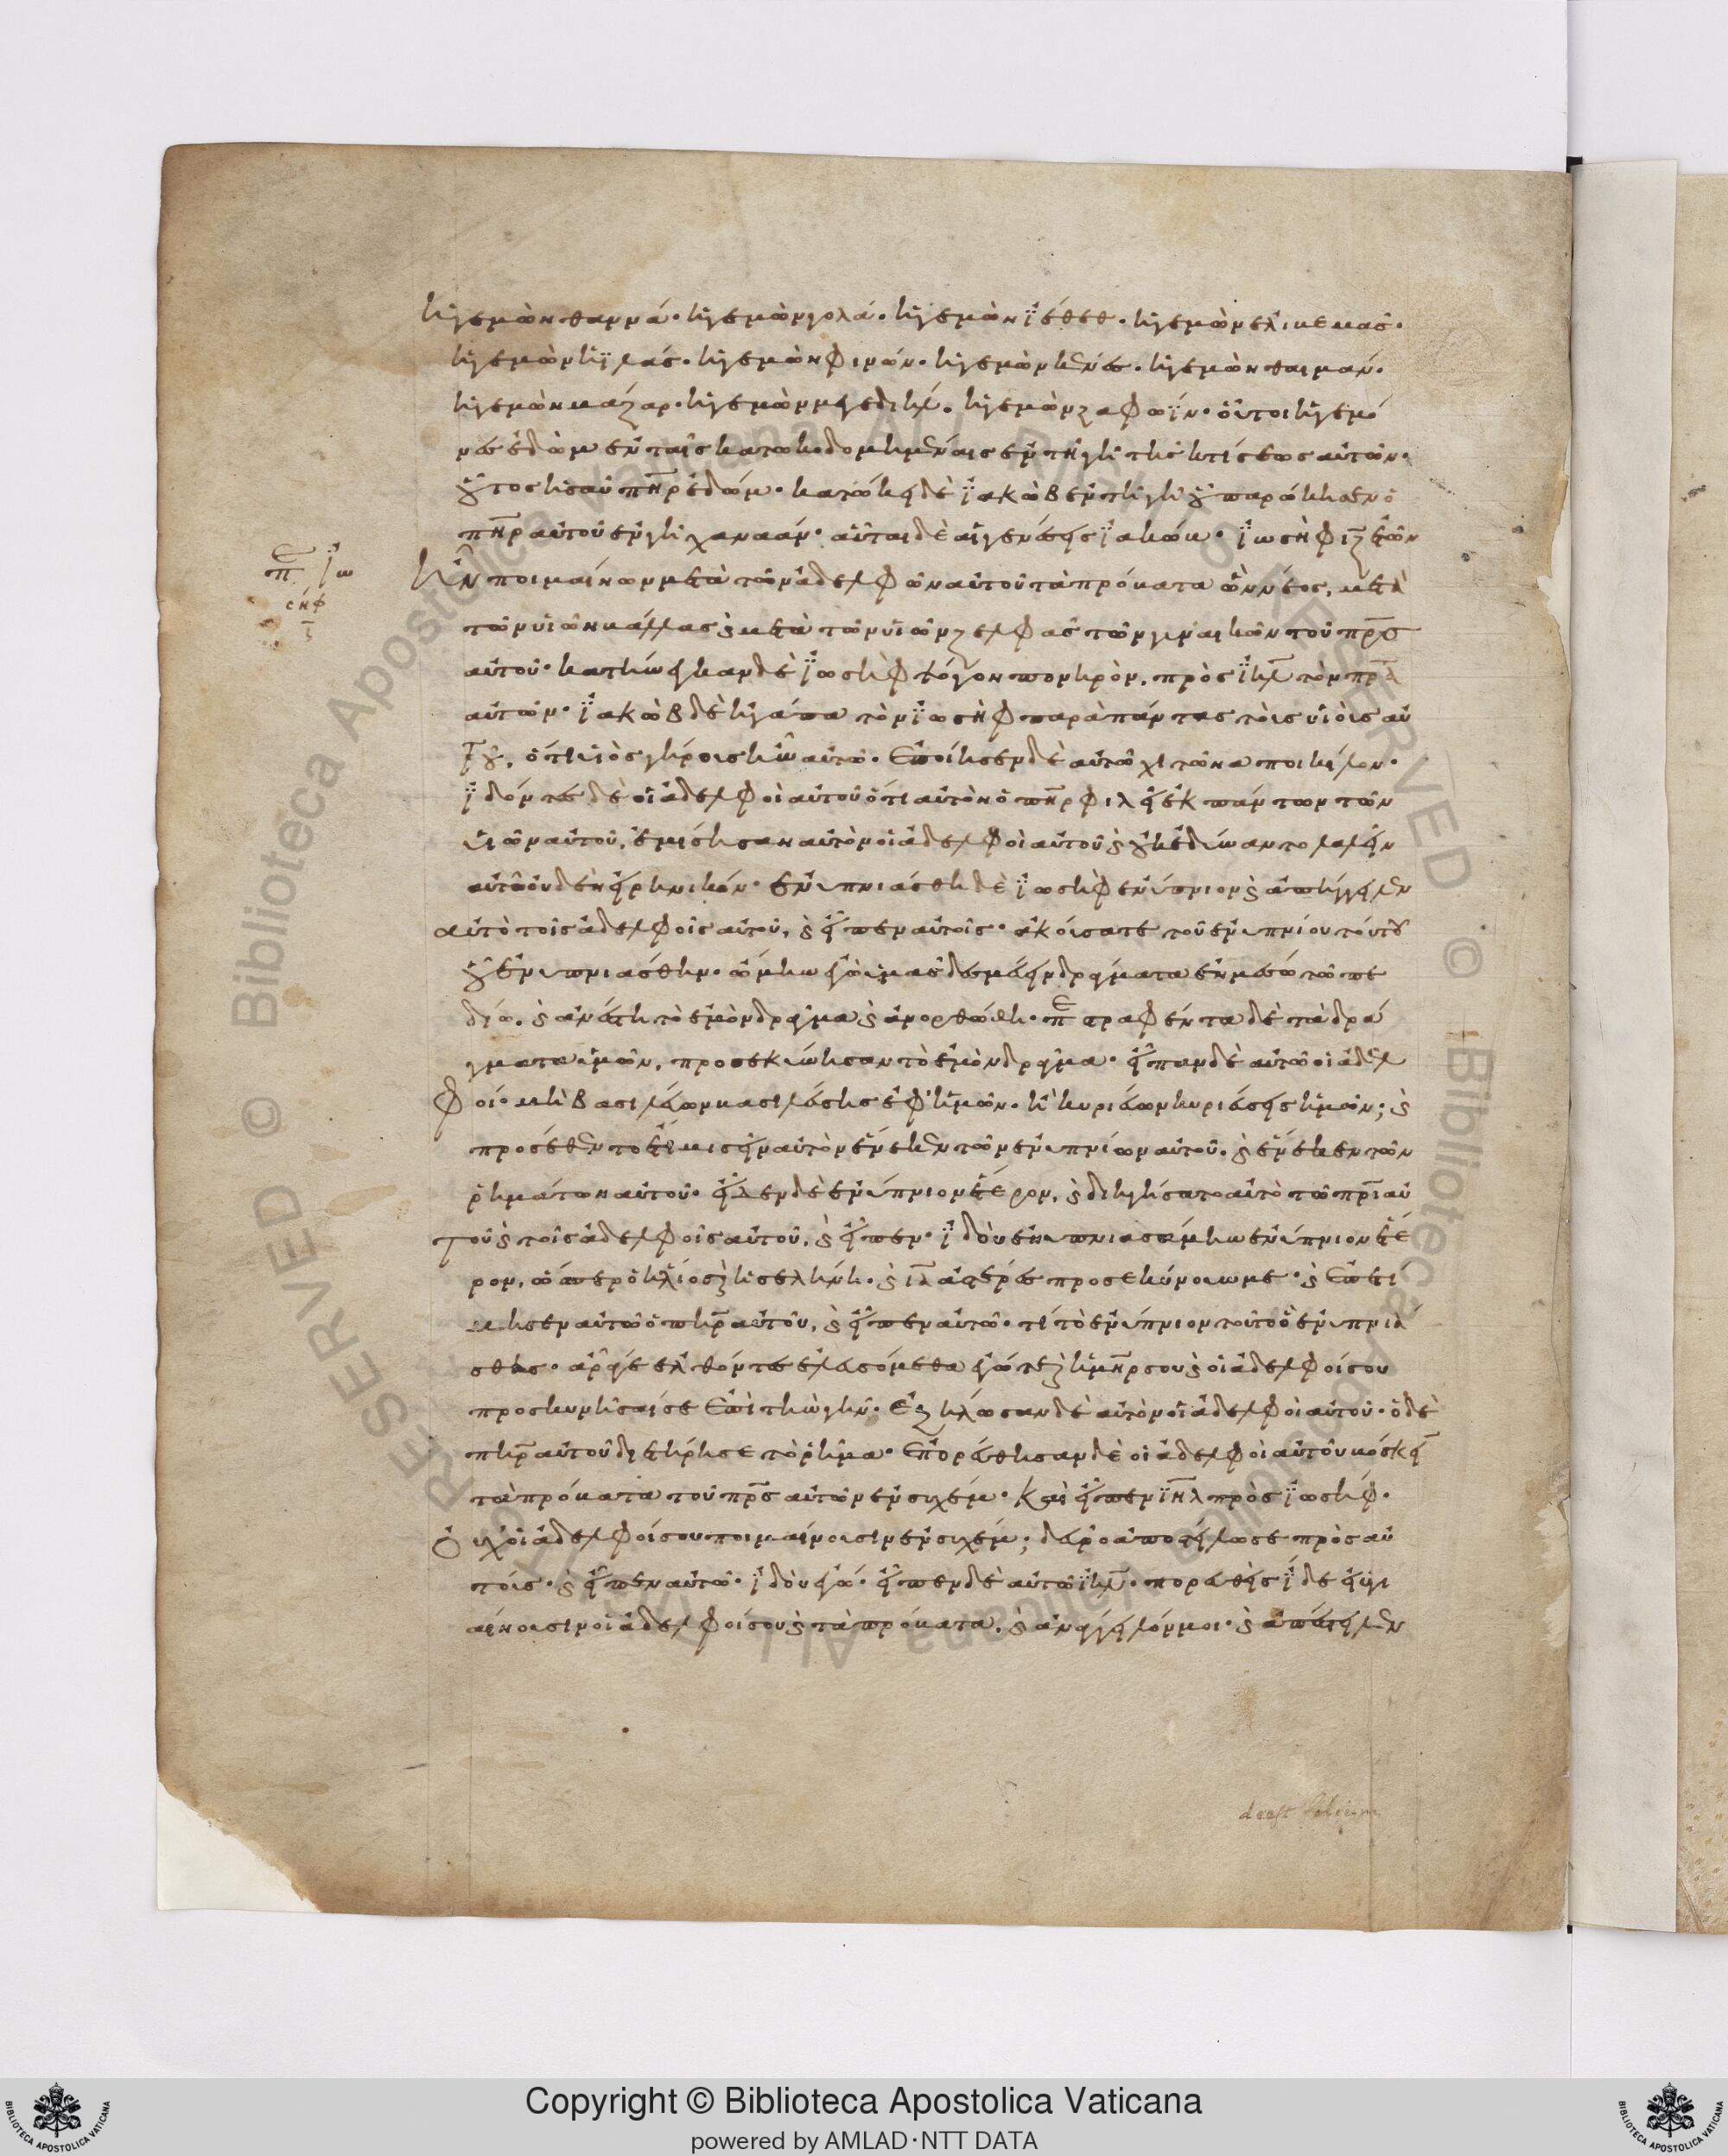 ἡγεμὼν θαμμά· ἡγεμὼν γολά· ἡγεμὼν ϊέθεθ· ἡγεμὼν ἐλιβεμάς·
ἡγεμὼν ἠϊλάς· ἡγεμὼν φινών· ἡγεμὼν κενέζ· ἡγεμὼν θαιμάν·
ἡγεμὼν μαζαρ· ἡγεμὼν μαγεδιήλ· ἡγεμὼν ζαφωΐν· οὗτοι ἡγεμό
νες ἐδὼμ ἐν ταῖς κατωκοδομημέναις ἐν τῆ γῆ τῆς κτίσεως αὐτῶν·
οὗτος ἡσαῦ πηρ ἐδώμ· κατώκει δὲ ϊακὼβ ἐν τῆ γῆ οὗ παρώκησεν ὁ
πηρ αὐτοῦ ἐν γῆ χαναάν· αὗται δὲ αἱ γενέσεις ϊακώβ· ϊωσὴφ ιζ ἐτῶν
ἦν ποιμαίνων μετὰ τῶν ἀδελφῶν αὐτοῦ τὰ πρόβατα ὢν νέος, μετὰ
τῶν υἱῶν βάλλας καὶ μετὰ τῶν υἱῶν ζελφᾶς τῶν γυναικῶν τοῦ πρς
αὐτοῦ· κατήνεγκαν δὲ ϊωσὴφ λόγον πονηρὸν, πρὸς ϊηλ τὸν πρα
αὐτῶν· ϊακὼβ δὲ ἠγάπα τὸν ϊωσὴφ παρὰ πάντας τοὺς υἱοὺς αὐ
τοῦ, ὅτι υἱὸς γήρους ἦν αὐτῶ· ἐποίησεν δὲ αὐτῶ χιτῶνα ποικίλον·
ϊδόντες δὲ οἱ ἀδελφοὶ αὐτοῦ ὅτι αὐτὸν ὁ πηρ φιλεῖ ἐκ πάντων τῶν
υἱῶν αὐτοῦ, ἐμίσησαν αὐτὸν οἱ ἀδελφοὶ αὐτοῦ καὶ οὐκ ἐδύναντο λαλεῖν
αὐτῶ οὐδὲν εἰρηνικόν· ἐνυπνιάσθη δὲ ϊωσὴφ ἐνύπνιον καὶ ἀπήγγειλεν
αὐτὸ τοῖς ἀδελφοῖς αὐτοῦ, καὶ εἶπεν αὐτοῖς· ἀκούσατε τοῦ ἐνυπνίου τούτου
οὗ ἐνυπνιάσθην· ὤμην ἐγὼ ὑμᾶς δεσμεύειν δράγματα ἐν μέσω τῶ πε
δίω, καὶ ἀνέστη τὸ ἐμὸν δράγμα καὶ ἀνορθώθη· περιστραφέντα δὲ τὰ δρά
γματα ὑμῶν, προσεκύνησαν τὸ ἐμὸν δράγμα· εἶπαν δὲ αὐτῶ οἱ ἀδελ
φοί· μὴ βασιλεύων βασιλεύσης ἐφ' ἡμῶν· ἢ κυριεύων κυριεύσεις ἡμῶν; καὶ
προσέθεντο ἔτι μισεῖν αὐτὸν ἕνεκεν τῶν ἐνυπνίων αὐτοῦ, καὶ ἕνεκεν τῶν
ῥημάτων αὐτοῦ· εἶδεν δὲ ἐνύπνιον ἕτερον, καὶ διηγήσατο αὐτὸ τῶ πρι αὐ
τοῦ καὶ τοῖς ἀδελφοῖς αὐτοῦ, καὶ εἶπεν· ϊδοὺ ἐνυπνιασάμην ἐνύπνιον ἕτε
ρον, ὥσπερ ὁ ἥλιος καὶ ἡ σελήνη· καὶ ια ἀστέρες προσεκύνουν με· καὶ ἐπετί
μησεν αὐτῶ ὁ πηρ αὐτοῦ, καὶ εἶπεν αὐτῶ· τί τὸ ἐνύπνιον τοῦτο ὃ ἐνυπνιά
σθης· ἆρά γε ἐλθόντες ἐλευσόμεθα ἐγώ τε καὶ ἡ μηρ σου καὶ οἱ ἀδελφοί σου
προσκυνῆσαί σε ἐπὶ τὴν γῆν· ἐζήλωσαν δὲ αὐτὸν οἱ ἀδελφοὶ αὐτοῦ· ὁ δὲ
πηρ αὐτοῦ διετήρησε τὸ ῥῆμα· ἐπορεύθησαν δὲ οἱ ἀδελφοὶ αὐτοῦ βόσκειν
τὰ πρόβατα τοῦ πρς αὐτῶν ἐν συχέμ· καὶ εἶπεν ϊηλ πρὸς ϊωσήφ·
οὐχ οἱ ἀδελφοί σου ποιμαίνουσιν ἐν συχέμ; δεῦρο ἀποστείλω σε πρὸς αὐ
τούς· καὶ εἶπεν αὐτῶ· ϊδοὺ ἐγώ· εἶπεν δὲ αὐτῶ ϊηλ· πορευθεὶς ϊδε εἰ ὑγι
αίνουσιν οἱ ἀδελφοί σου καὶ τὰ πρόβατα, καὶ ἀνάγγειλόν μοι· καὶ ἀπέστειλεν
deest folium
Copyright © Biblioteca Apostolica Vaticana
powered by AMLAD·NTT DATA